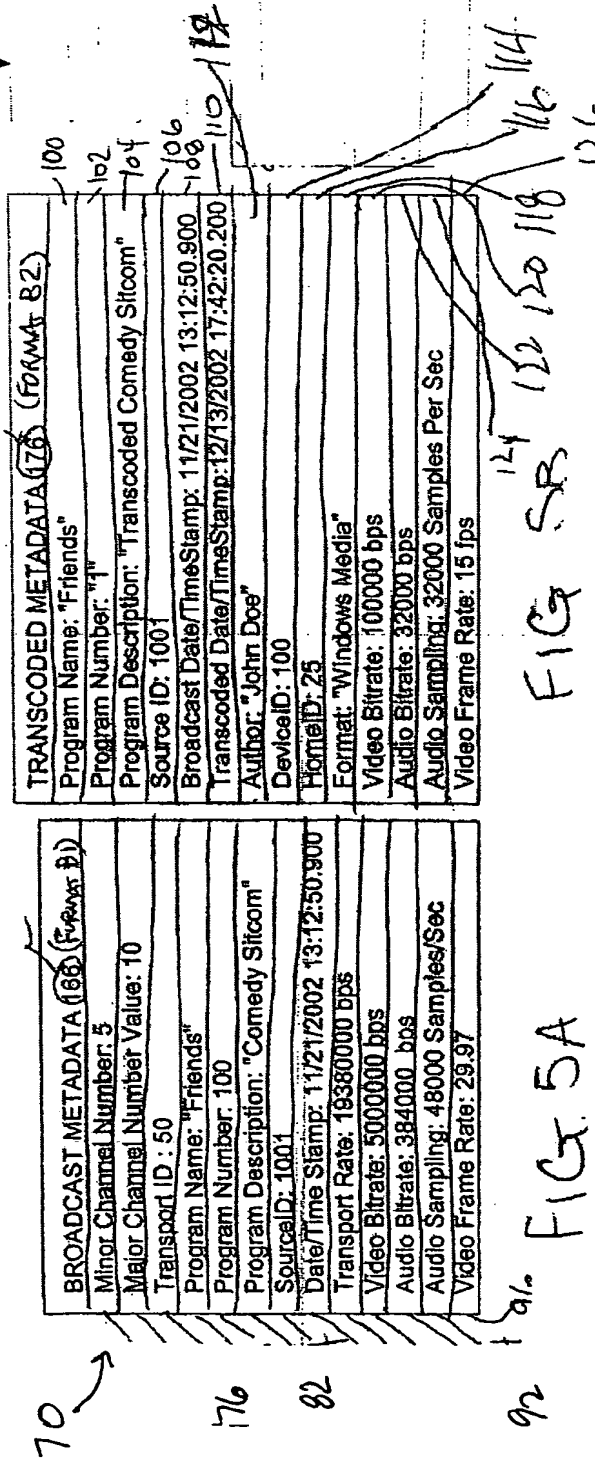 70
76
82
92
96
BROADCAST METADATA (166) (FORMAT B1)
Minor Channel Number: 5
Major Channel Number Value: 10
Transport ID : 50
Program Name: "Friends"
Program Number: 100
Program Description: "Comedy Sitcom"
SourceID: 1001
Date/Time Stamp: 11/21/2002 13:12:50.900
Transport Rate: 19380000 bps
Video Bitrate: 5000000 bps
Audio Bitrate: 384000 bps
Audio Sampling: 48000 Samples/Sec
Video Frame Rate: 29.97
FIG. 5A
TRANSCODED METADATA (176) (FORMAT B2)
Program Name: "Friends"
Program Number: "1"
Program Description: "Transcoded Comedy Sitcom"
Source ID: 1001
Broadcast Date/TimeStamp: 11/21/2002 13:12:50.900
Transcoded Date/TimeStamp:12/13/2002 17:42:20.200
Author: "John Doe"
DeviceID: 100
HomeID: 25
Format: "Windows Media"
Video Bitrate: 100000 bps
Audio Bitrate: 32000 bps
Audio Sampling: 32000 Samples Per Sec
Video Frame Rate: 15 fps
100
102
104
106
108
110
112
114
116
118
120
122
124
FIG 5B